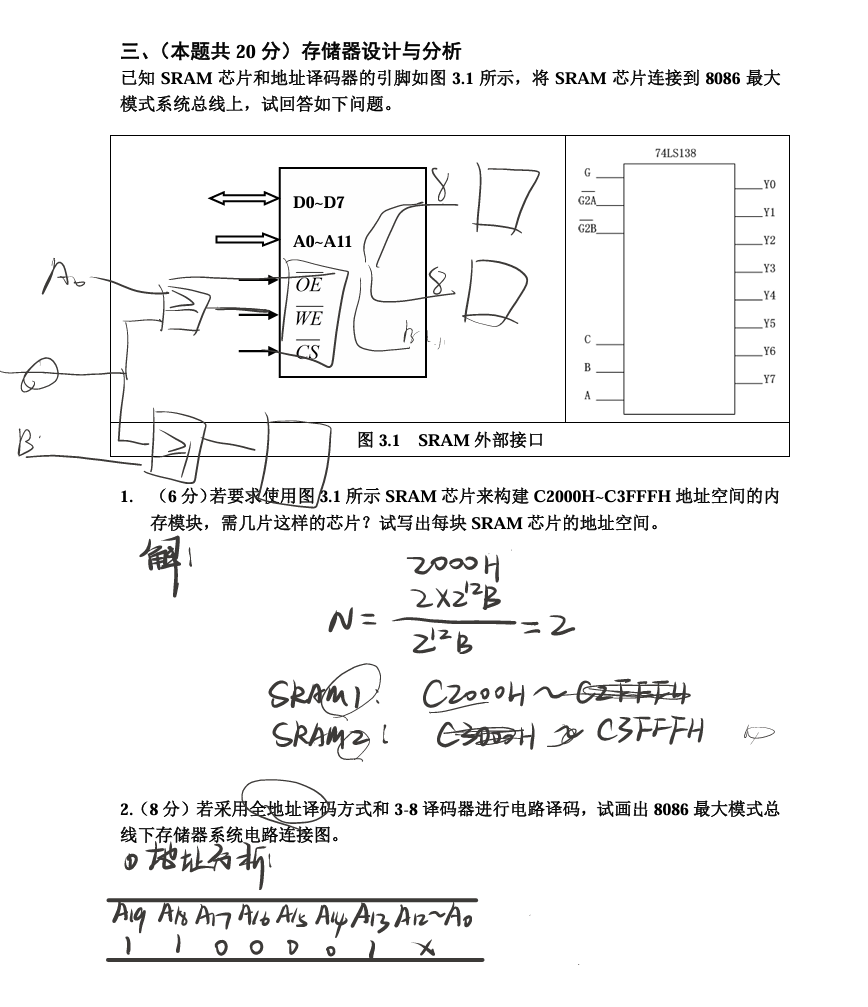 三、（本题共 20 分）存储器设计与分析
已知 SRAM 芯片和地址译码器的引脚如图 3.1 所示，将 SRAM 芯片连接到 8086 最大
模式系统总线上，试回答如下问题。
74LS138
D0~D7
A0~A11
OE
WE
CS
8
8
A0
B
G
G2A
G2B
C
B
A
Y0
Y1
Y2
Y3
Y4
Y5
Y6
Y7
≥
≥
图 3.1 SRAM 外部接口
1. （6 分）若要求使用图 3.1 所示 SRAM 芯片来构建 C2000H~C3FFFH 地址空间的内
存模块，需几片这样的芯片？试写出每块 SRAM 芯片的地址空间。
解：
2000H
N = 2×2¹²B / 2¹²B = 2
SRAM1: C2000H ~ C2FFFH
SRAM2: C3000H ~ C3FFFH
2.（8 分）若采用全地址译码方式和 3-8 译码器进行电路译码，试画出 8086 最大模式总
线下存储器系统电路连接图。
① 地址分析：
A19 A18 A17 A16 A15 A14 A13 A12~A0
1 1 0 0 0 0 1 ×